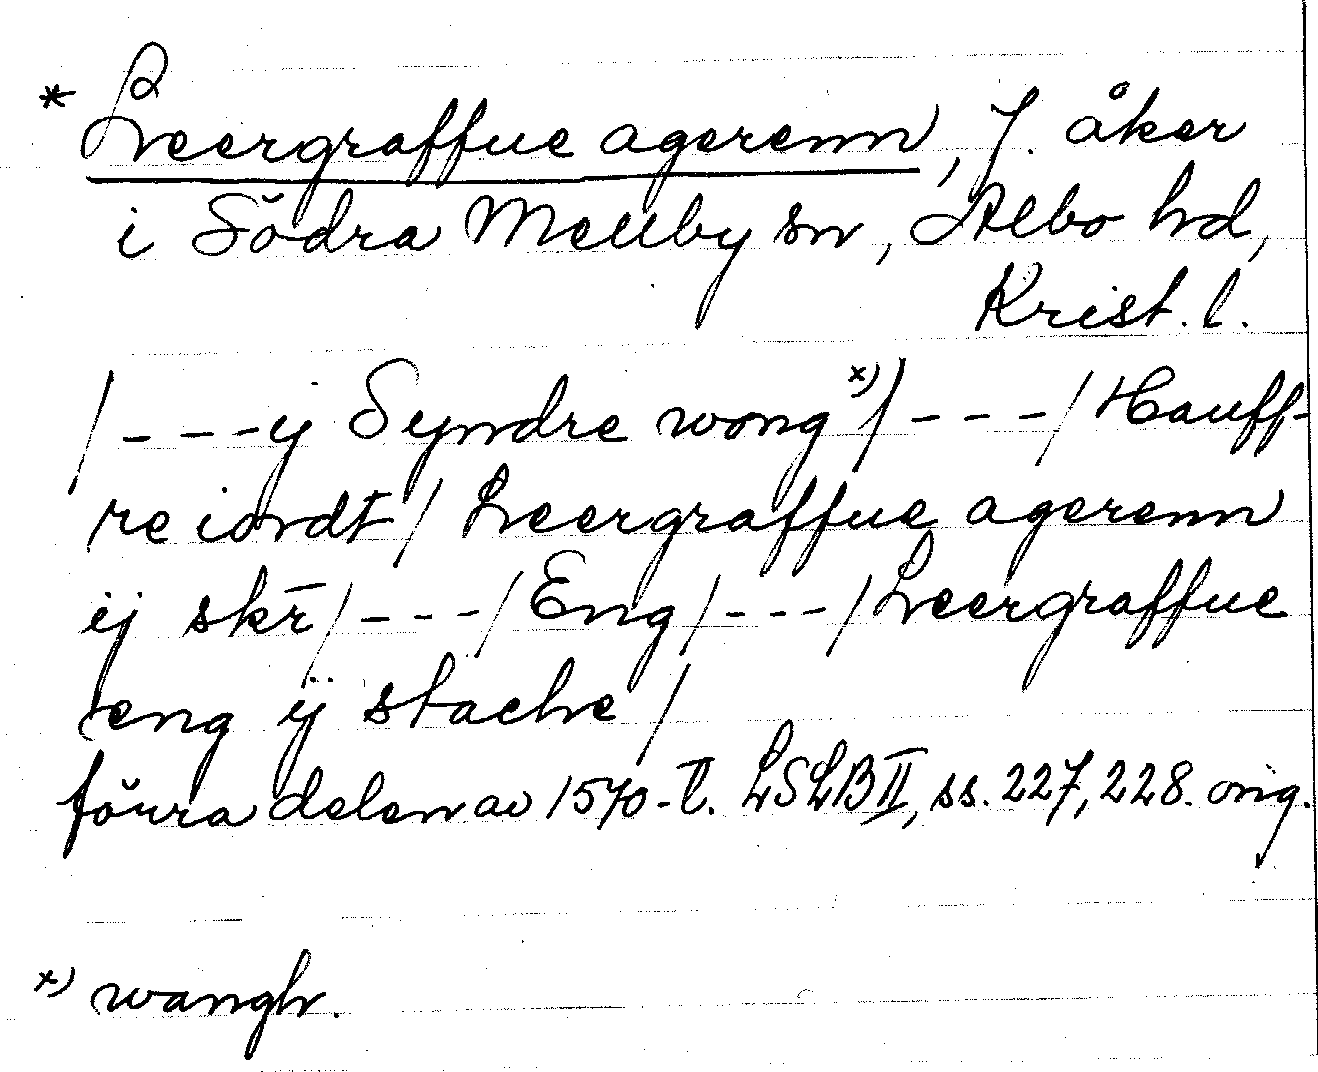 * Leergraffue agerenn, f. åker
i Södra Mellby sn, Albo hd,
Krist. l.
/---y Syndre wong x)/---/ Hauff-
re iordt/ Leergraffue agerenn
ij skr̄/---/Eng/---/Leergraffue
eng ÿ stache/
förra delen av 1570-t. LSLB II, ss. 227, 228. orig.
x) wangh.